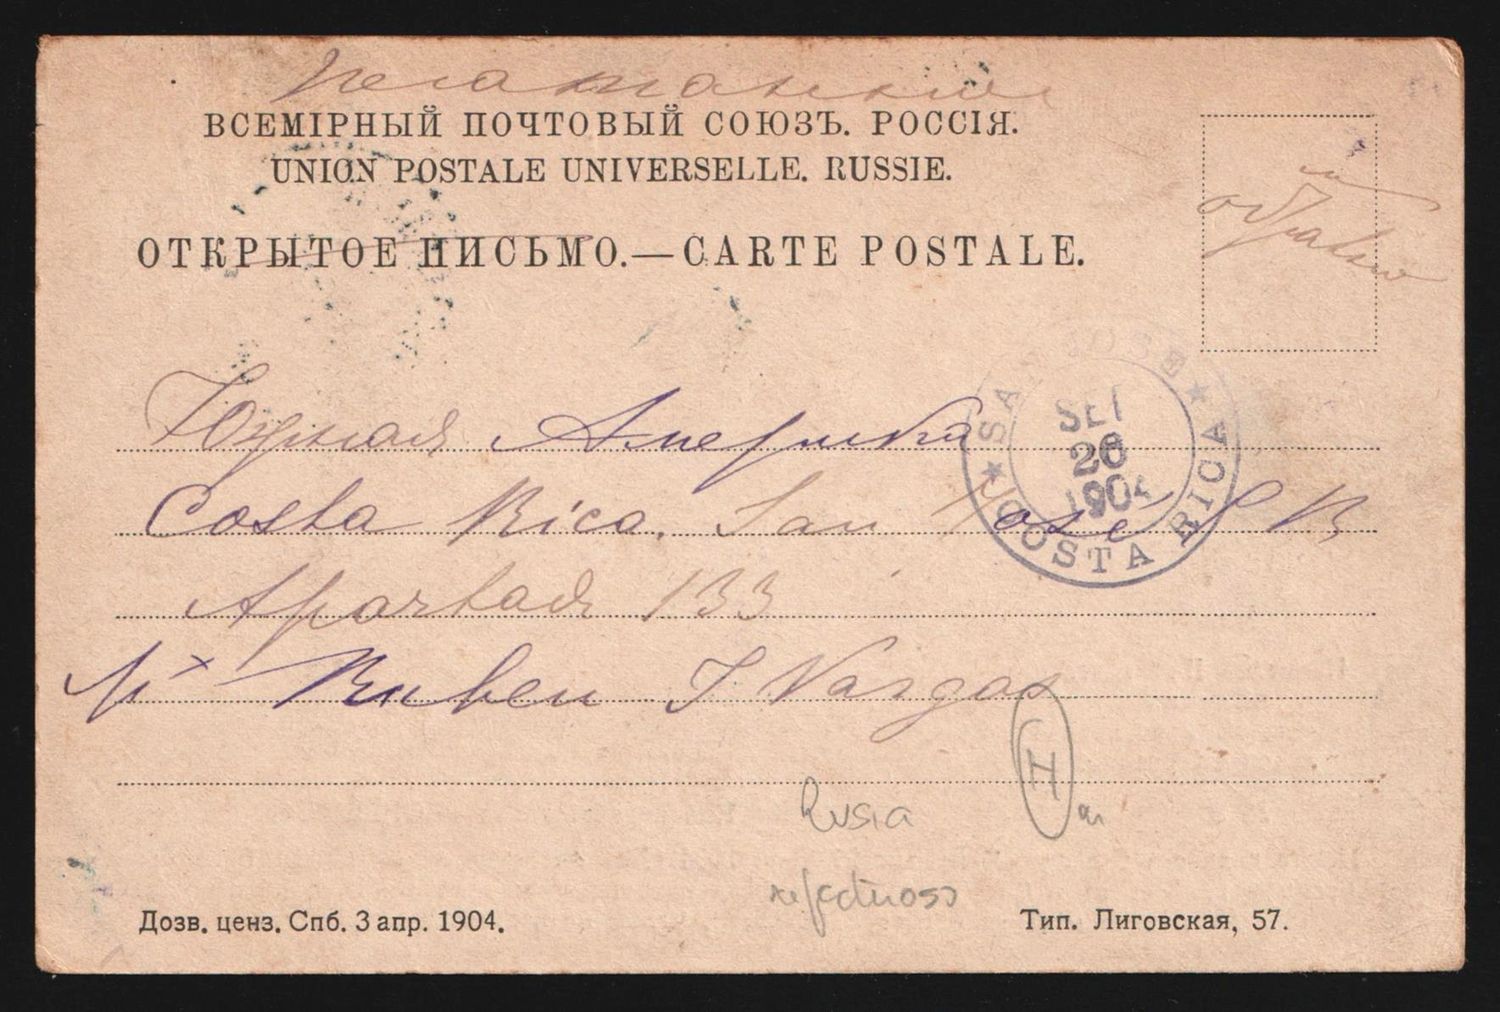 Печатное
ВСЕМІРНЫЙ ПОЧТОВЫЙ СОЮЗЪ. РОССІЯ.
UNION POSTALE UNIVERSELLE. RUSSIE.
ОТКРЫТОЕ ПИСЬМО.—CARTE POSTALE.
Южная Америка
SAN JOSE
SET
26
1904
COSTA RICA
Costa Rica. San José C R
Apartado 133
Ruben J Vargas
I
Rusia
Дозв. ценз. Спб. 3 апр. 1904.
Тип. Лиговская, 57.